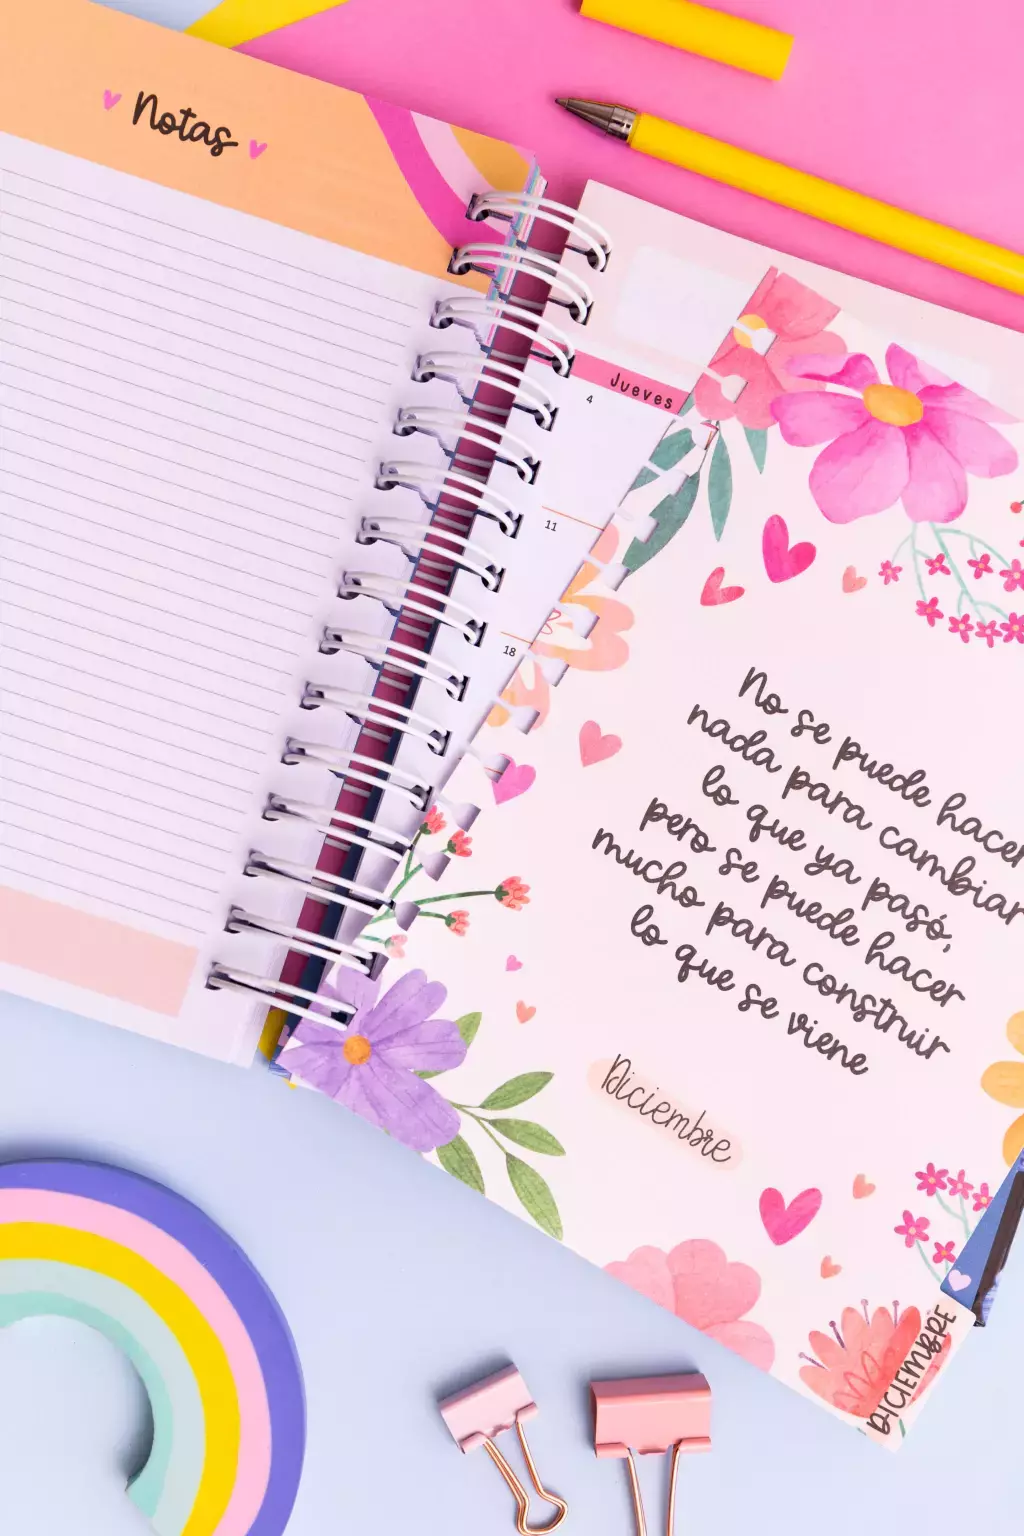 Notas
Jueves
4
11
18
No se puede hacer
nada para cambiar
lo que ya pasó,
pero se puede hacer
mucho para construir
lo que se viene
Diciembre
DICIEMBRE